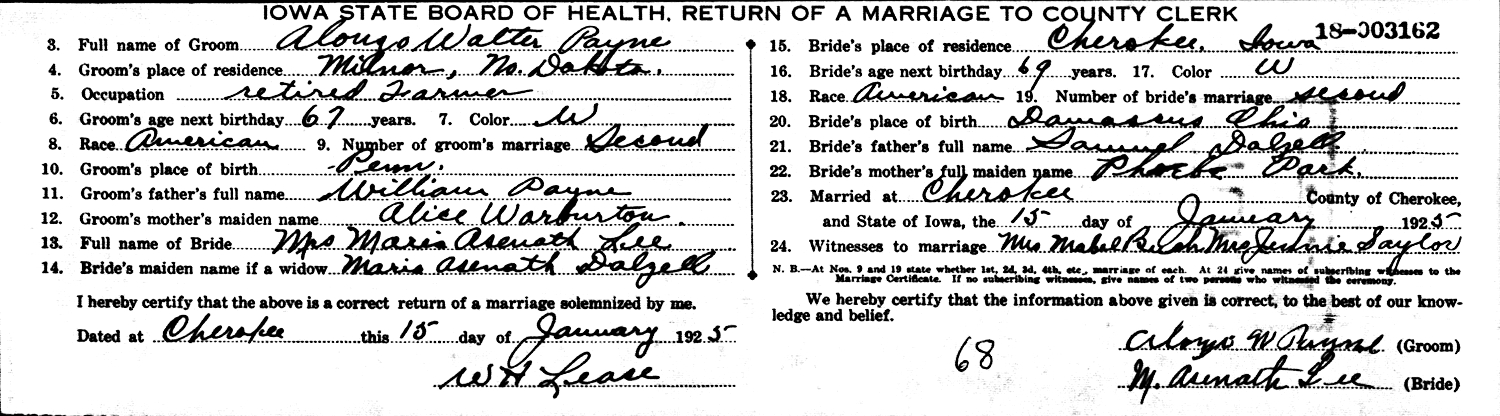 IOWA STATE BOARD OF HEALTH, RETURN OF A MARRIAGE TO COUNTY CLERK
18-003162
3. Full name of Groom Alonzo Walter Payne
4. Groom's place of residence Milnor, No. Dakota.
5. Occupation retired Farmer
6. Groom's age next birthday 67 years. 7. Color W
8. Race American 9. Number of groom's marriage Second
10. Groom's place of birth Penn.
11. Groom's father's full name William Payne
12. Groom's mother's maiden name Alice Warburton.
13. Full name of Bride Mrs Maria Asenath Lee
14. Bride's maiden name if a widow Maria Asenath Dalzell
I hereby certify that the above is a correct return of a marriage solemnized by me.
Dated at Cherokee this 15 day of January 1925
W H Lease
15. Bride's place of residence Cherokee, Iowa
16. Bride's age next birthday 69 years. 17. Color W
18. Race American 19. Number of bride's marriage second
20. Bride's place of birth Damascus Ohio
21. Bride's father's full name Samuel Dalzell
22. Bride's mother's full maiden name Phoebe Park.
23. Married at Cherokee County of Cherokee,
and State of Iowa, the 15 day of January 1925
24. Witnesses to marriage Mrs. Mabel Mrs Jennie Saylor
N. B.—At Nos. 9 and 19 state whether 1st, 2d, 3d, 4th, etc., marriage of each. At 24 give names of subscribing witnesses to the
Marriage Certificate. If no subscribing witnesses, give names of two persons who witnessed the ceremony.
We hereby certify that the information above given is correct, to the best of our know-
ledge and belief.
68
Alonzo W Payne (Groom)
M. Asenath Lee (Bride)